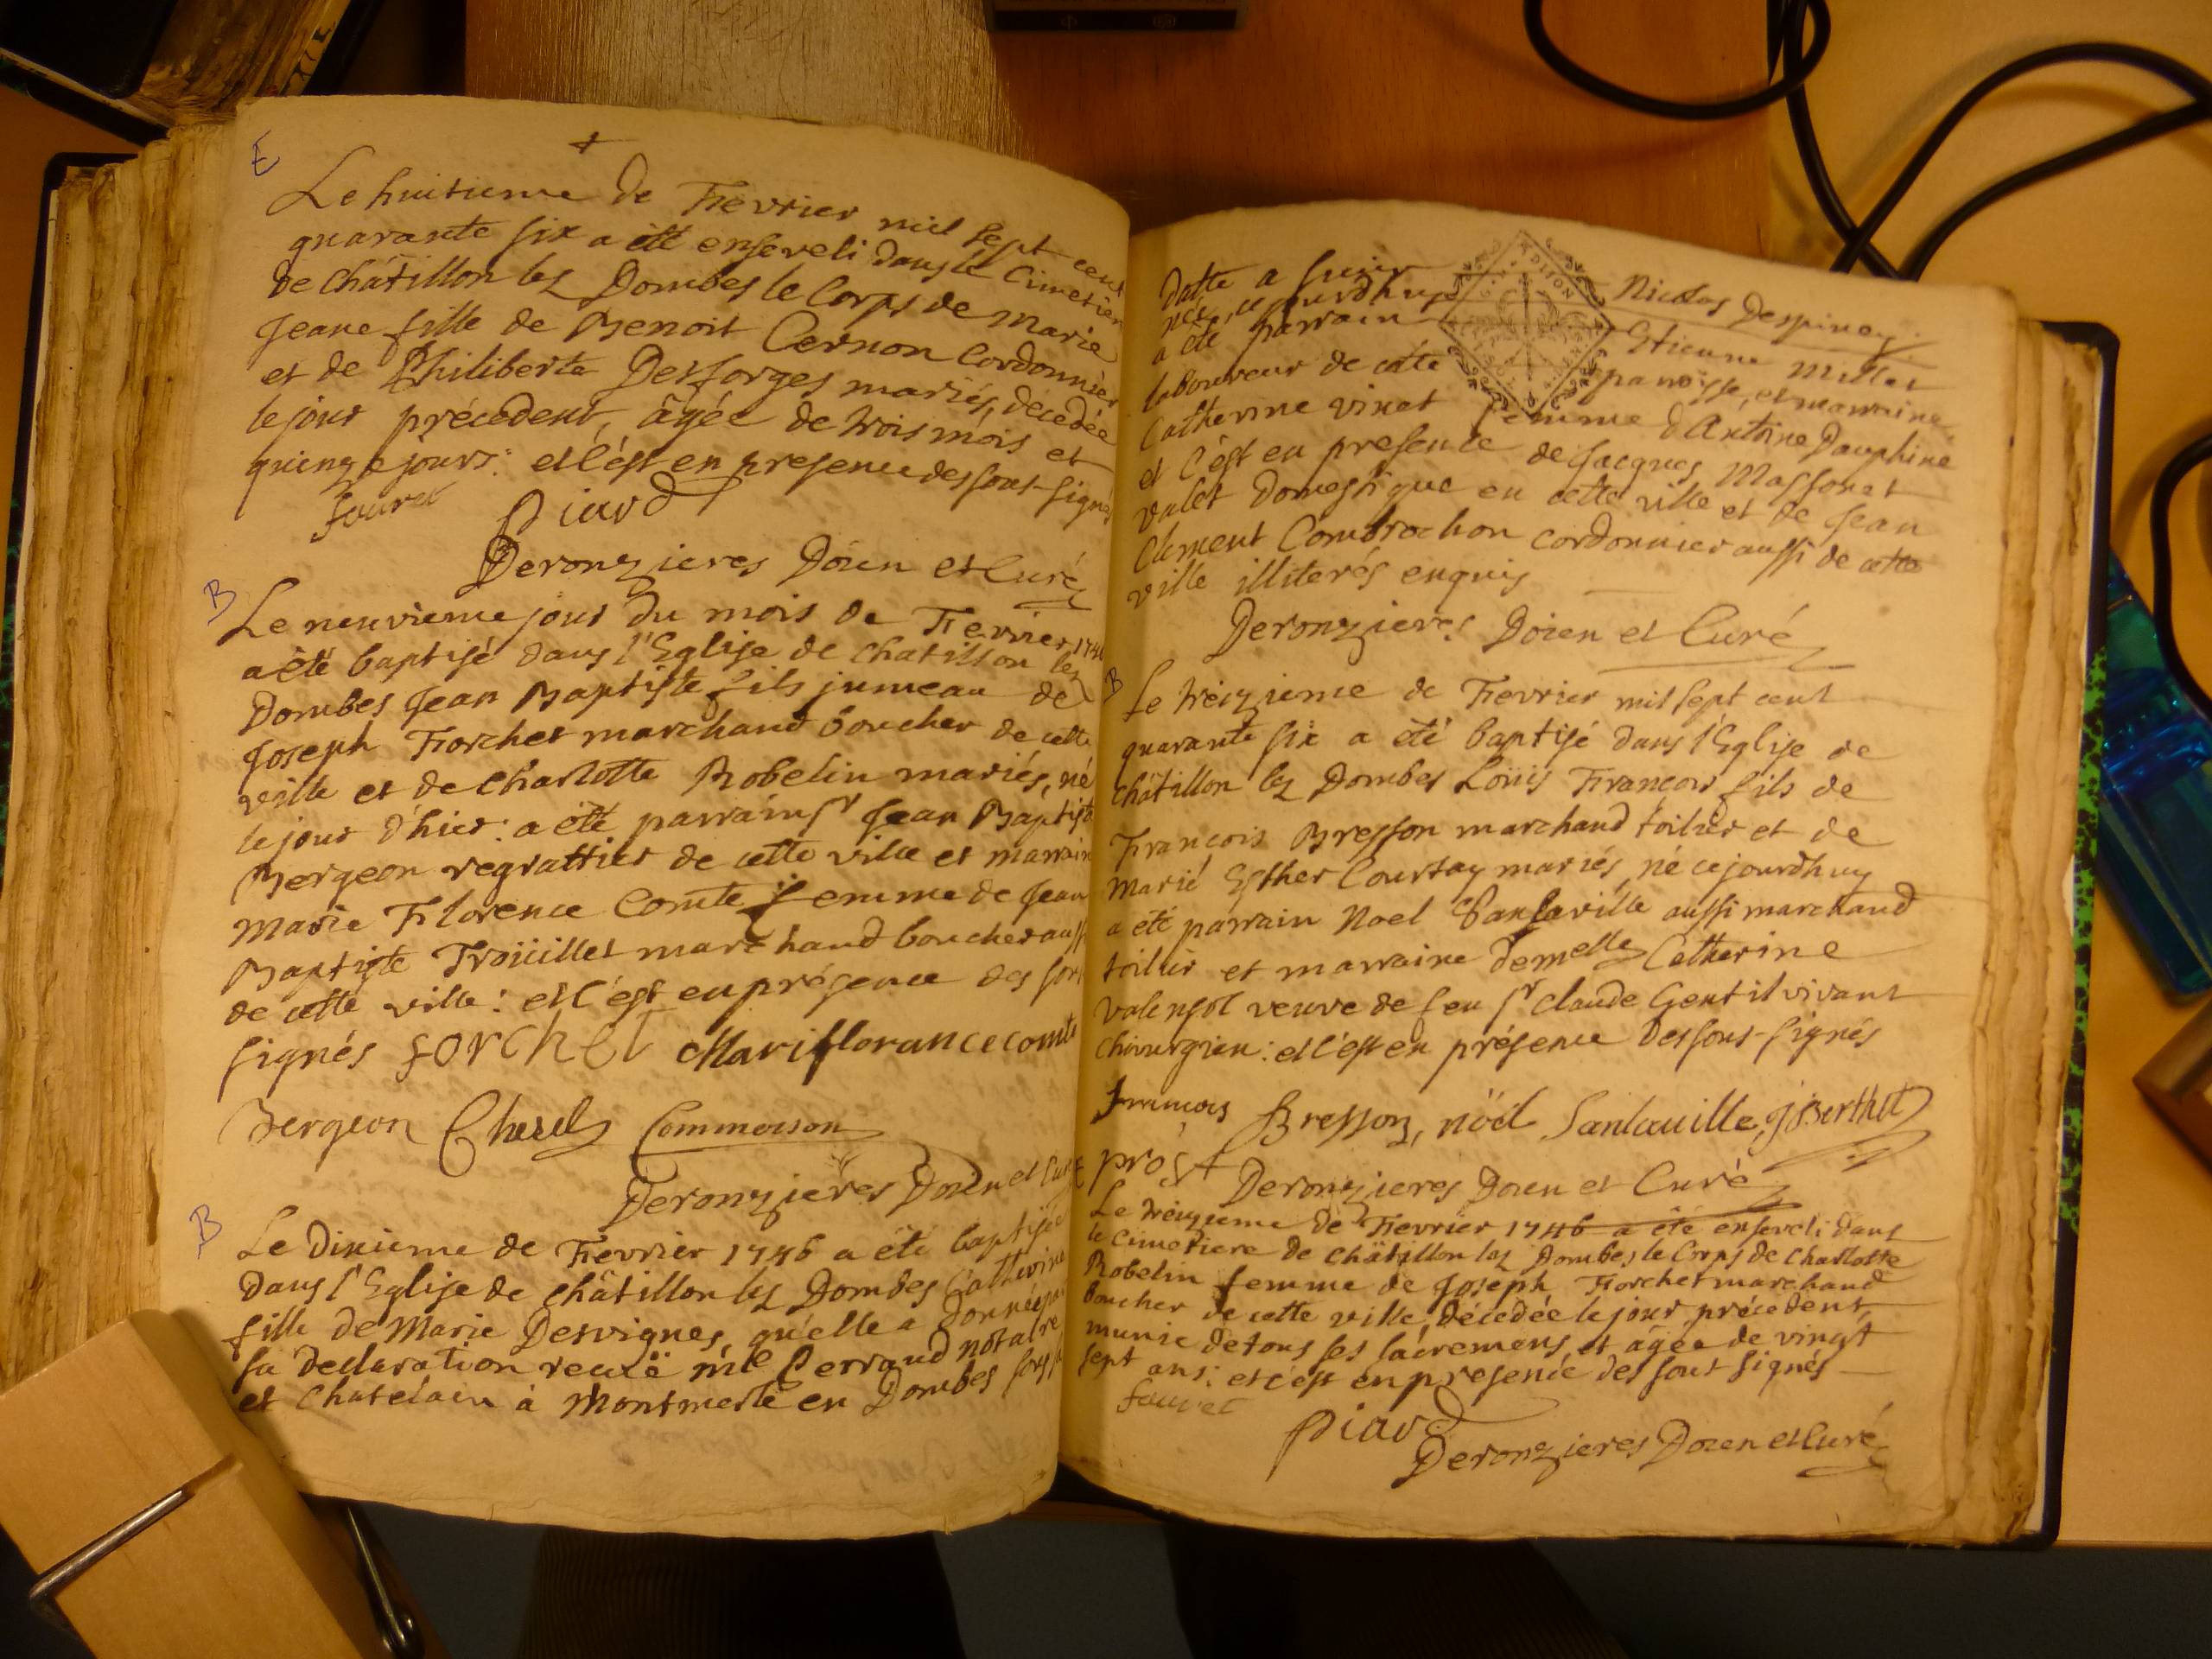 E
Le huitieme de Fievrier mil sept cent
quarante six a été enseveli dans le Cimetier
de Châtillon les Dombes le Corps de Marie
Jeane fille de Benoit Cernon Cordonnier
et de Philiberte Desforges mariés, décedée
le jour précedent, âgée de trois mois et
quinze jours: et c'est en presence des sous-signés
fauret Piard
Deronzieres Doïen et Curé
B
Le neuvieme jour du mois de Fievrier 1746
a été baptisé dans l'Eglise de Chatillon les
Dombes Jean Baptiste fils jumeau de
Joseph Fiorchet marchand boucher de cette
ville et de Charlotte Robelin mariés, né
le jour d'hier: a été parrain sr Jean Baptiste
Bergeon regrattier de cette ville et marrain
Marie Florence Comte femme de Jean
Baptiste Troüillet marchand boucher aussi
de cette ville: et c'est en présence des sous
signés forchet Mari florance comte
Bergeon Cherel Commerson
Deronzieres Doïen et Curé
B
Le dixieme de Fievrier 1746 a été baptisée
dans l'Eglise de Châtillon les Dombes Catherine
fille de Marie Desvignes, qu'elle a donnée par
sa declaration à me Perraud notaire
et Chatelain à Montmerle en Dombes sous
datte a Nicolas Despiney:
née, ce jourdhuy
a été parrain Etienne Millet
laboureur de cette panoisse, et marraine
Catherine vinet femme d'Antoine Dauphine
et c'est en presence de Jacques Massonet
valet domestique en cette ville et de Jean
Clement Combrochon cordonnier aussi de cette
ville illiterés enquis
Deronzieres Doïen et Curé
B
Le treizieme de Fievrier mil sept cent
quarante six a été baptisé dans l'Eglise de
Châtillon les Dombes Loüis François fils de
François Bresson marchand toilier et de
Marie Esther Courtay mariés, né ce jourdhuy
a été parrain Noel Sanlaville aussi marchand
toilier et marraine demelle Catherine
Valensol veuve de feu sr Claude Gentil vivant
chirurgien: et c'est en présence des sous-signés
francois Bresson, nöel Sanlauille, Berthet
E
Deronzieres Doïen et Curé
Le treizieme de Fievrier 1746 a été enseveli dans
le Cimetiere de Châtillon les Dombes le Corps de Charlotte
Robelin femme de Joseph Fiorchet marchand
boucher de cette ville, décedée le jour précedent,
munie de tous ses sacremens, et âgée de vingt
sept ans: et c'est en presence des sous signés
fauret
Piard
Deronzieres Doïen et Curé